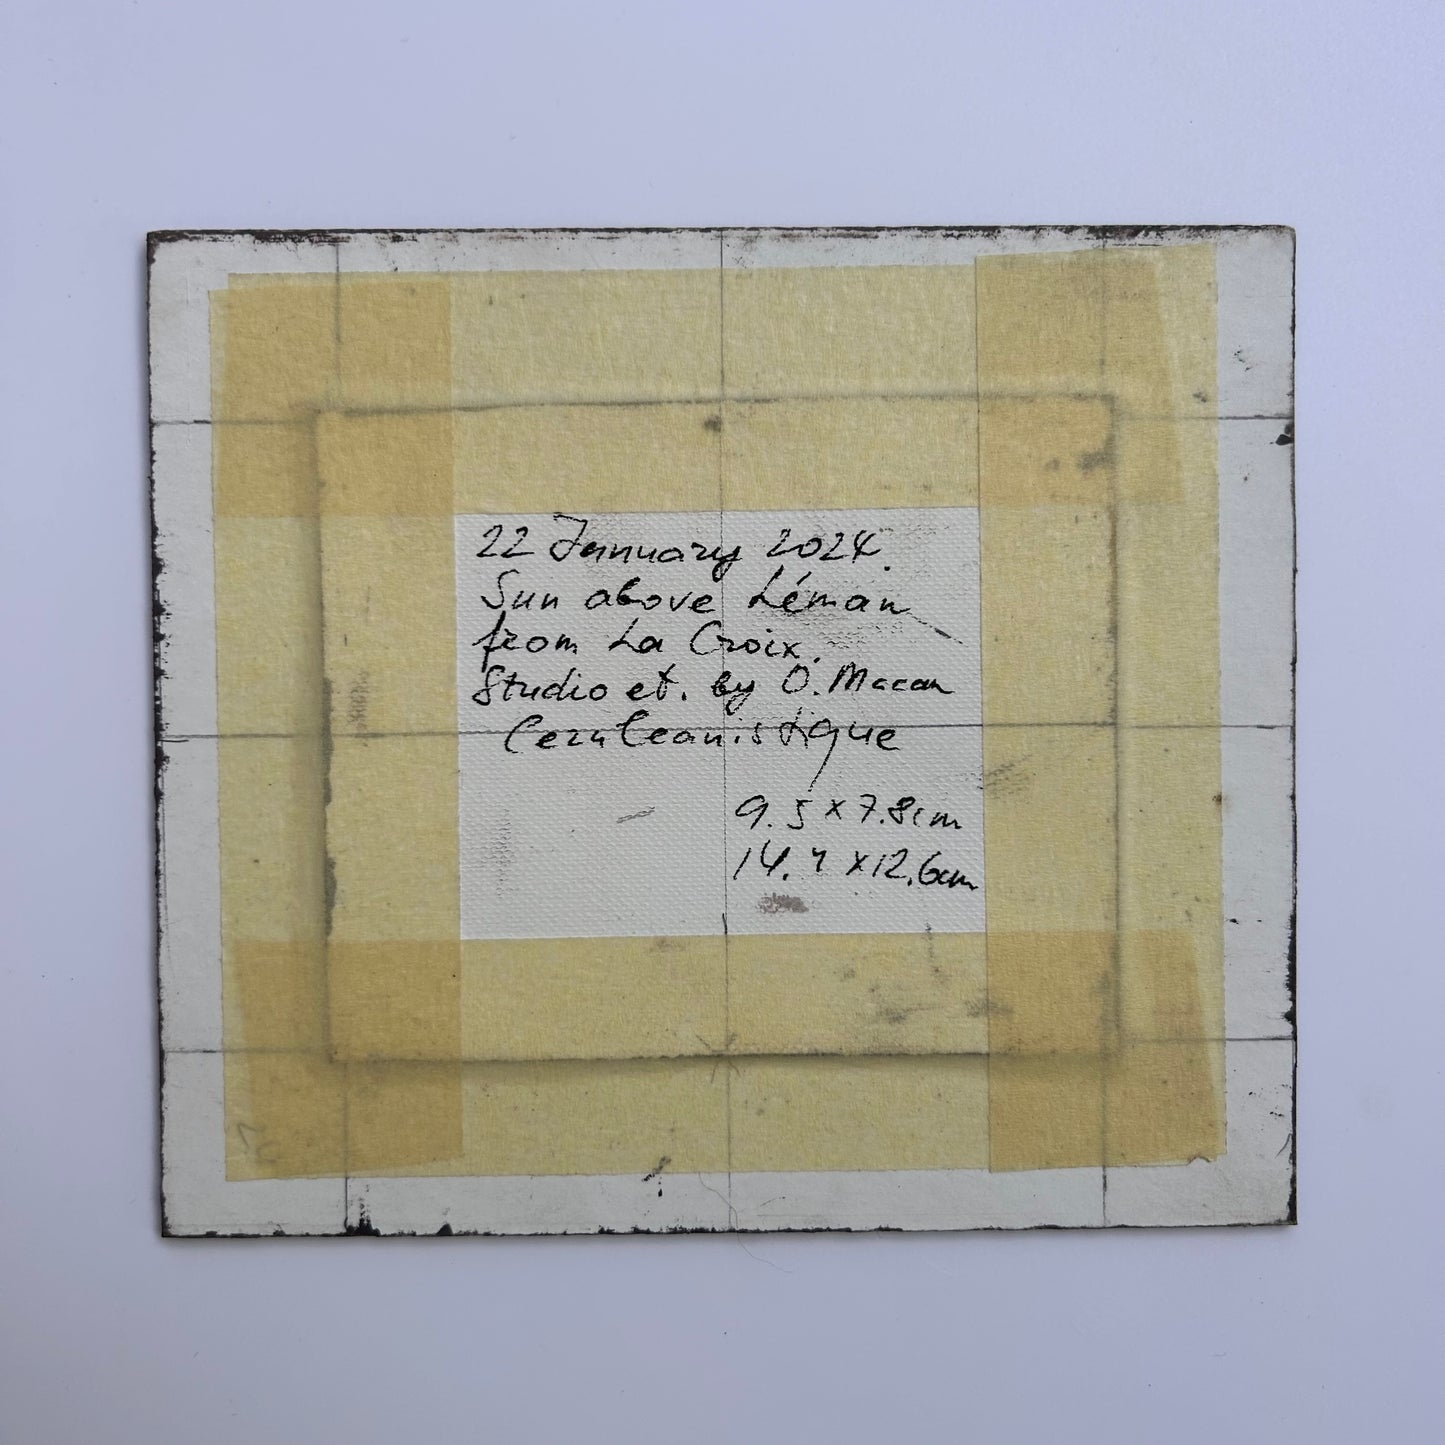 22 January 2024.
Sun above Léman
from La Croix.
Studio et. by O. Macan
Ceruleanistique
9.5 x 7.8cm
14.4 x 12.6cm